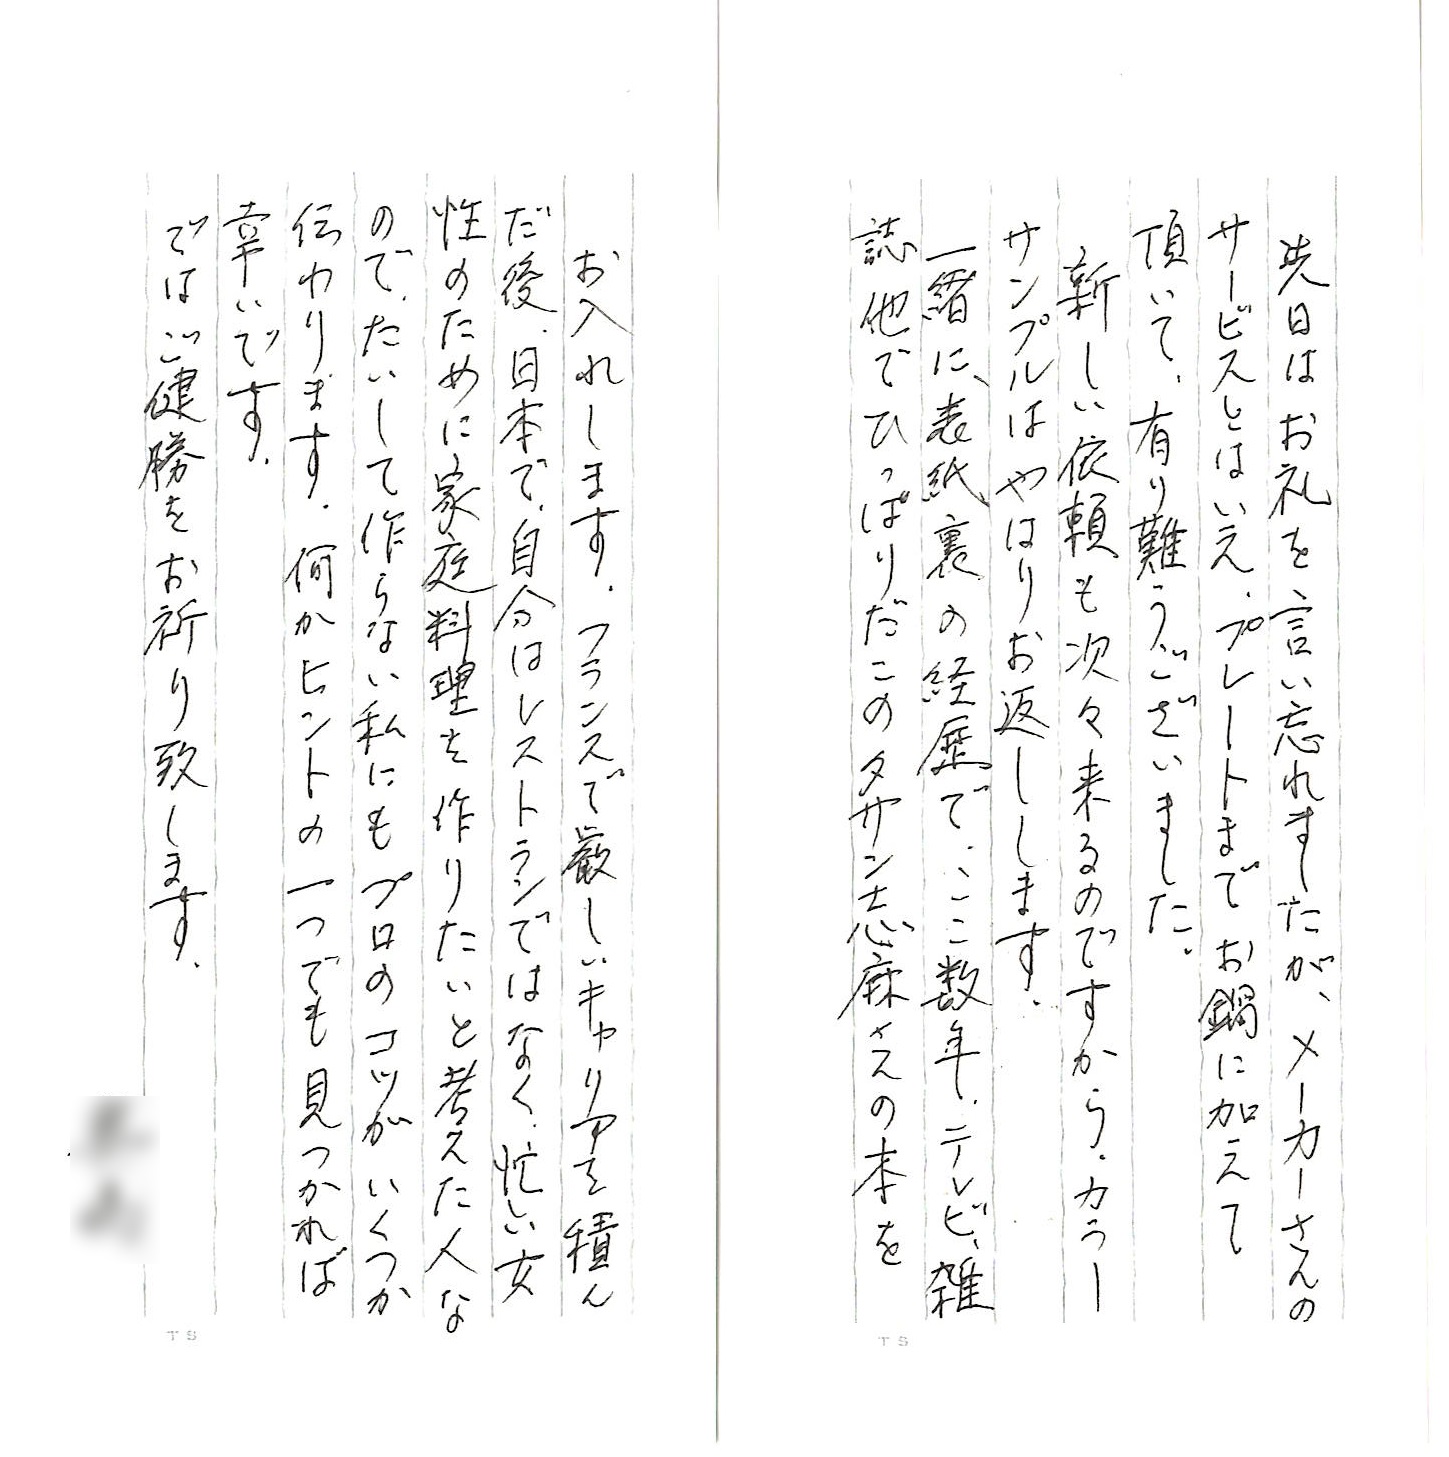 先日はお礼を言い忘れましたが、メーカーさんの
サービスとはいえ、プレートまでお鍋に加えて
頂いて、有り難うございました。
新しい依頼も次々来るのですから、カラー
サンプルはやはりお返しします。
一緒に、表紙裏の経歴で、ここ数年、テレビ、雑
誌他でひっぱりだこのタサン志麻さんの本を
お入れします。フランスで厳しいキャリアを積ん
だ後、日本で、自分はレストランではなく、忙しい女
性のために家庭料理を作りたいと考えた人な
ので、たいして作らない私にもプロのコツがいくつか
伝わります。何かヒントの一つでも見つかれば
幸いです。
ではご健勝をお祈り致します。
TS
TS